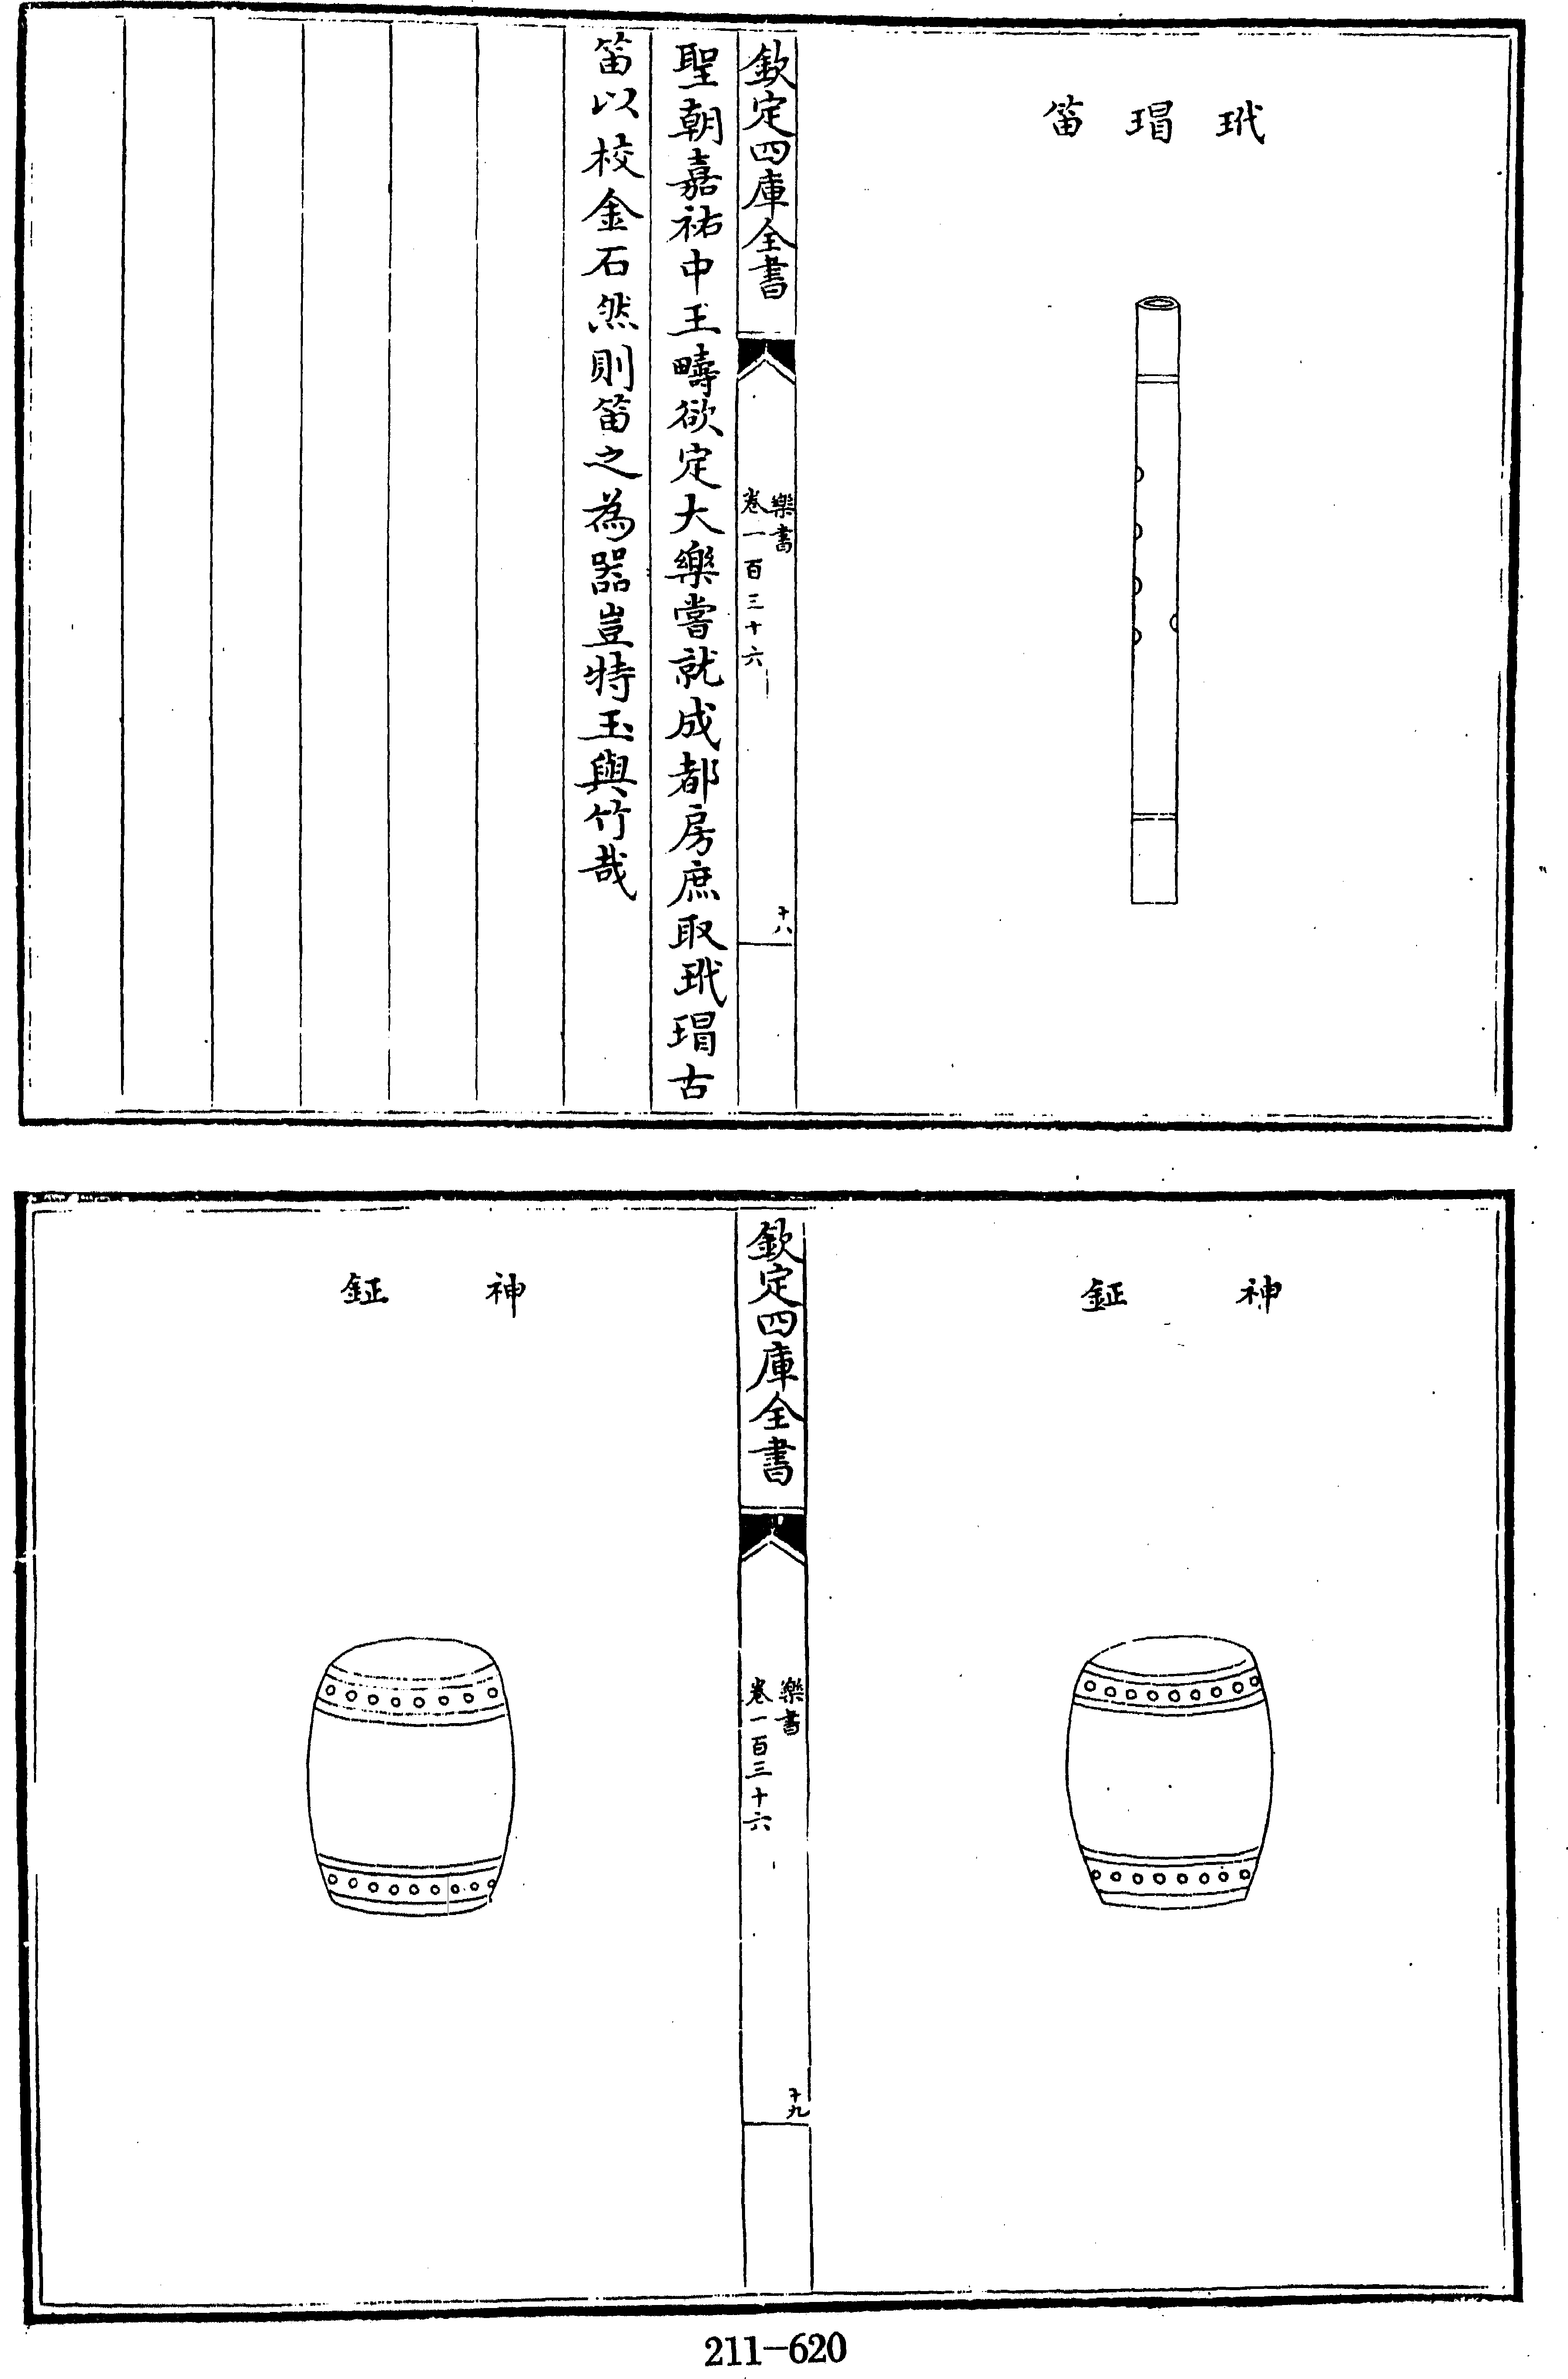 玳瑁笛
欽定四庫全書
樂書
卷一百三十六
十八
聖朝嘉祐中王疇欲定大樂嘗就成都房庶取玳瑁古
笛以校金石然則笛之為器豈特玉與竹哉
神鉦
欽定四庫全書
樂書
卷一百三十六
十九
神鉦
211-620